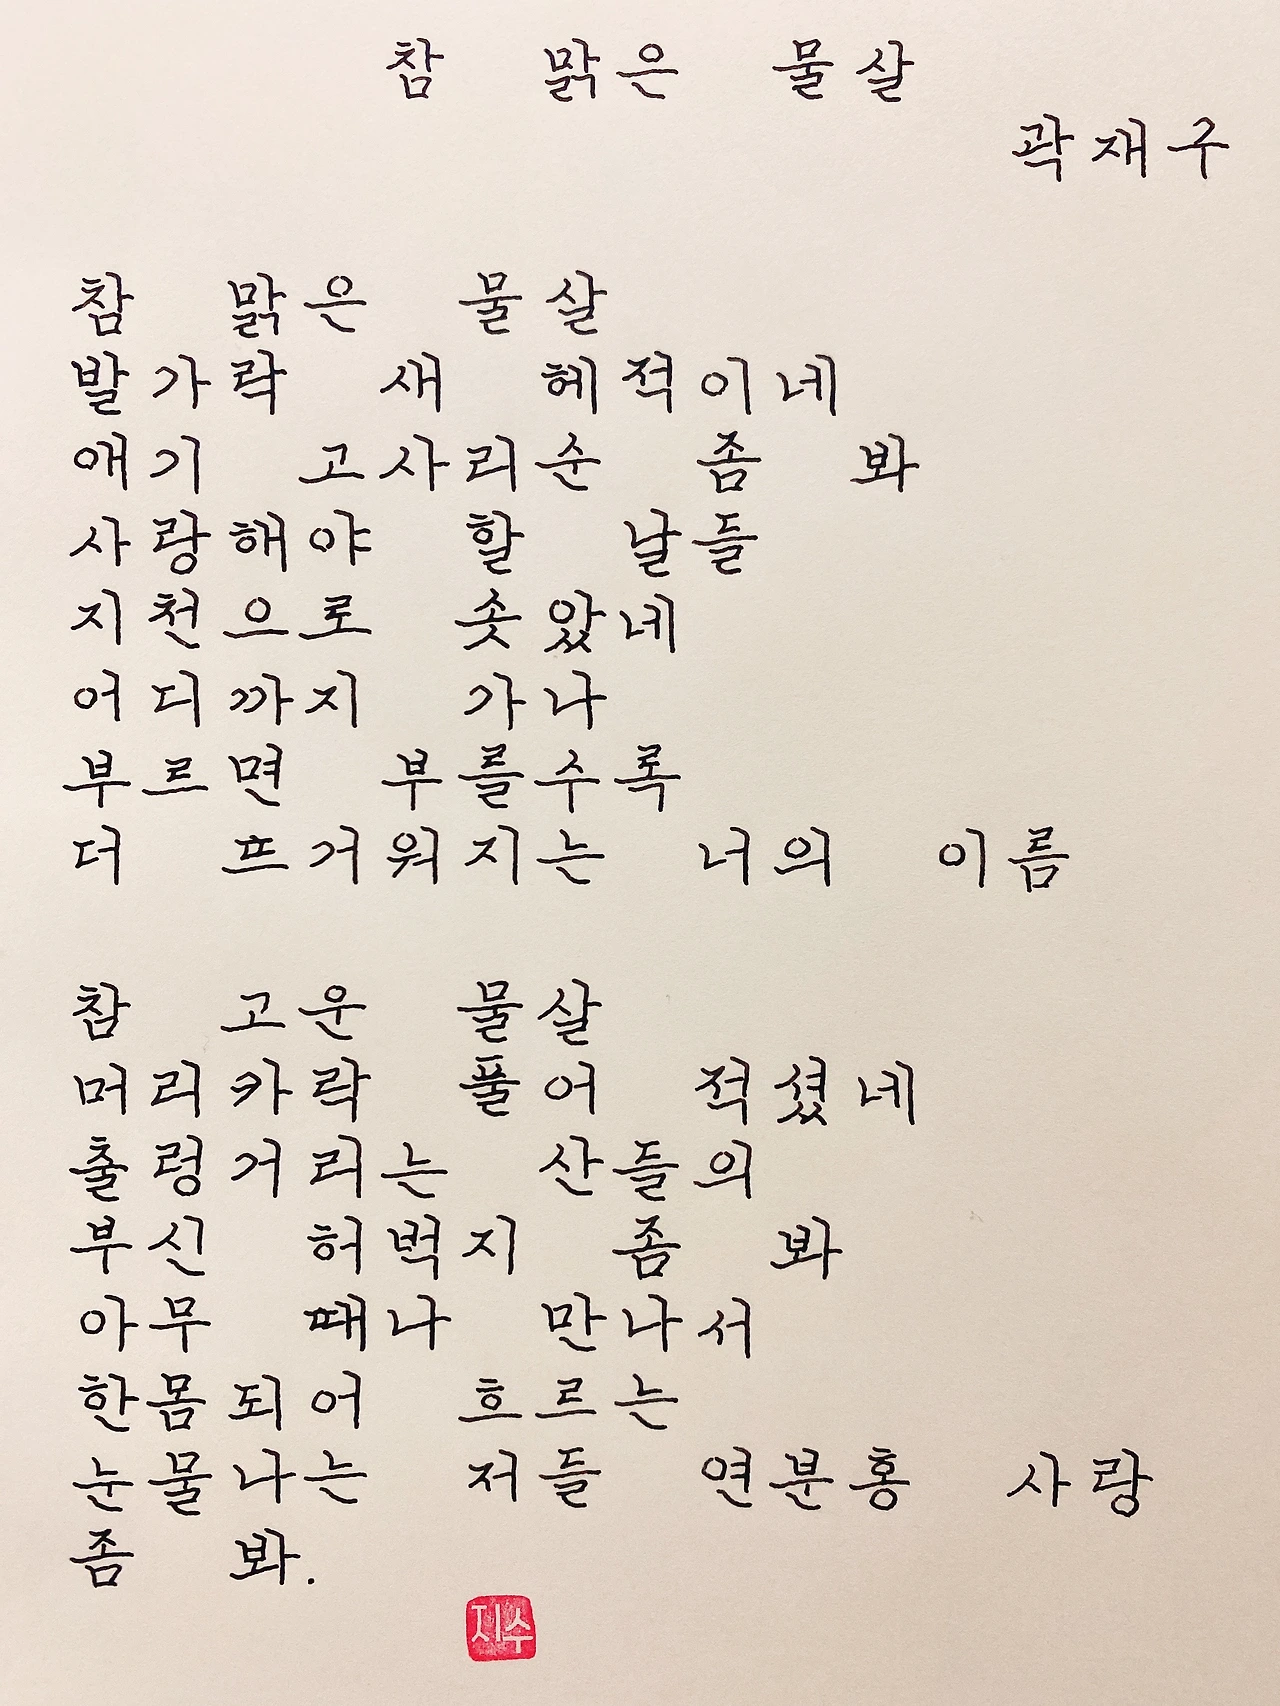 참 맑은 물살
곽재구
참 맑은 물살
발가락 새 헤적이네
애기 고사리순 좀 봐
사랑해야 할 날들
지천으로 솟았네
어디까지 가나
부르면 부를수록
더 뜨거워지는 너의 이름
참 고운 물살
머리카락 풀어 적셨네
출렁거리는 산들의
부신 허벅지 좀 봐
아무 때나 만나서
한몸되어 흐르는
눈물나는 저들 연분홍 사랑
좀 봐.
지수